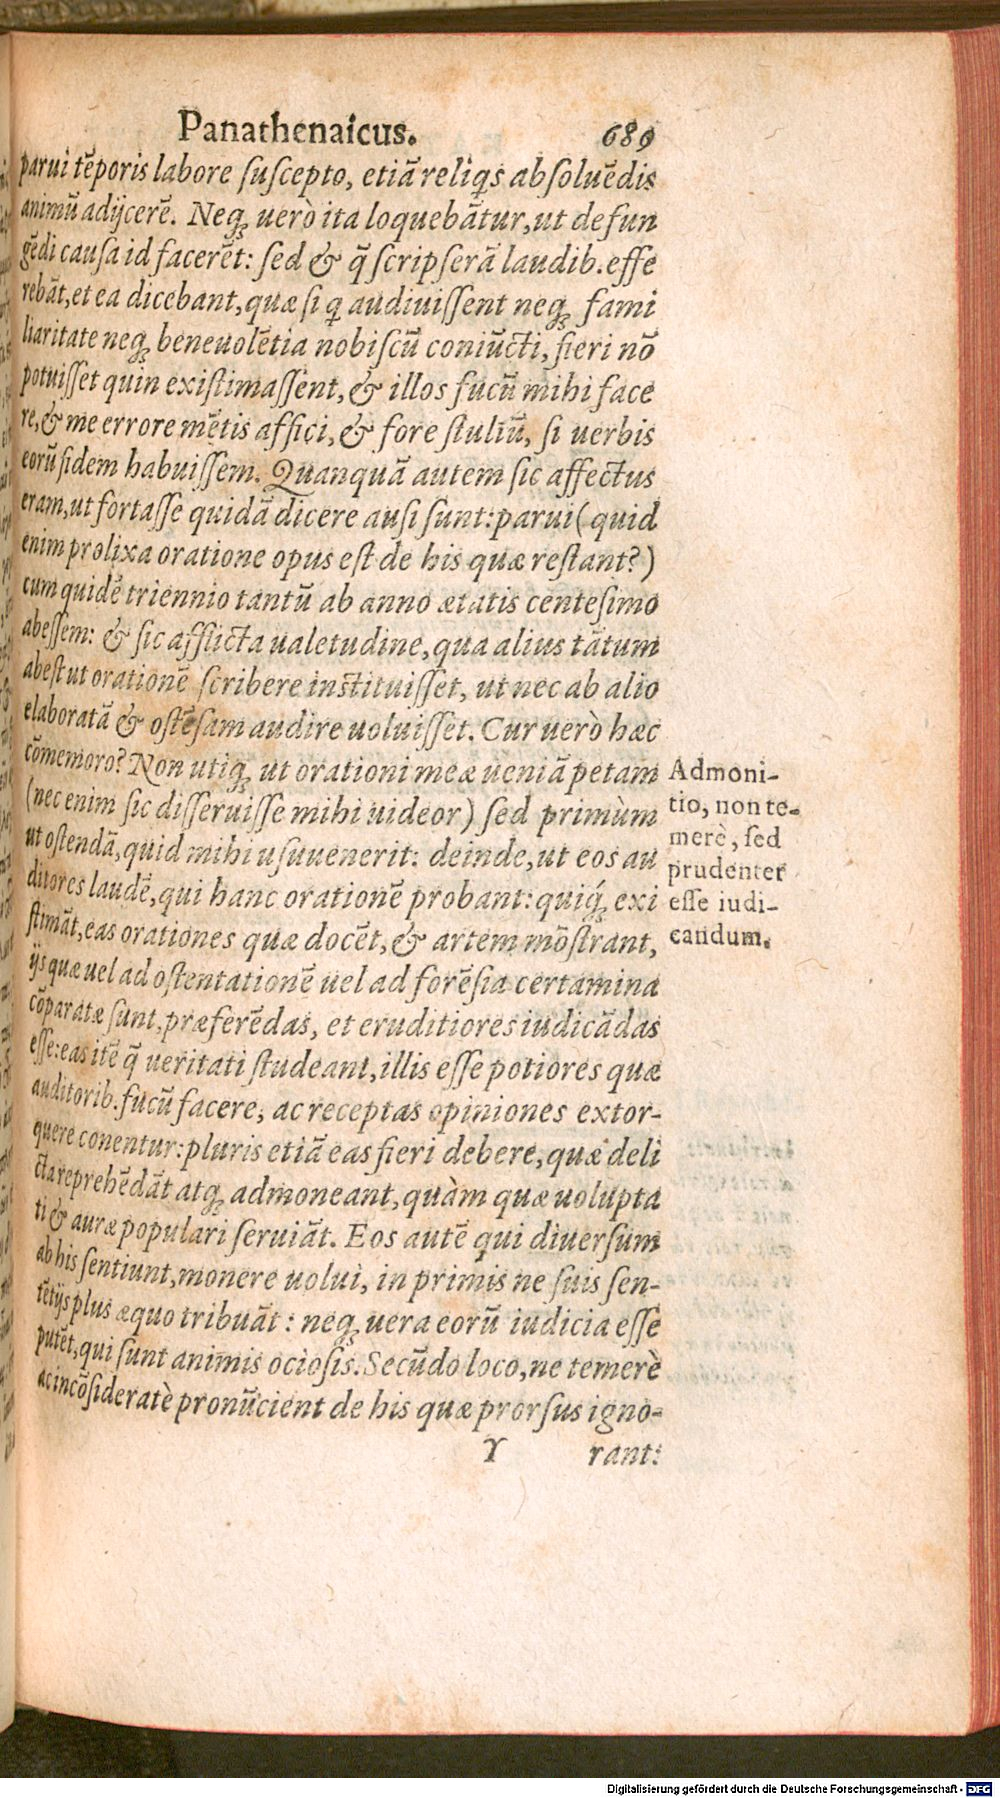 Panathenaicus. 689
parui tẽporis labore suscepto, etiã reliqs absoluẽdis
animũ adijcerẽ. Neq; uerò ita loquebãtur, ut defun
gẽdi causa id facerẽt: sed & q̃ scripserã laudib. effe
rebãt, et ea dicebant, quæ si q audiuissent neq; fami
liaritate neq; beneuolẽtia nobiscũ coniũcti, fieri nõ
potuisset quin existimassent, & illos fucũ mihi face
re, & me errore mẽtis affici, & fore stultũ, si uerbis
eorũ fidem habuissem. Quanquã autem sic affectus
eram, ut fortasse quidã dicere ausi sunt: parui (quid
enim prolixa oratione opus est de his quæ restant?)
cum quidẽ triennio tantũ ab anno ætatis centesimo
abessem: & sic afflicta ualetudine, qua alius tãtum
abest ut orationẽ scribere instituisset, ut nec ab alio
elaboratã & ostẽsam audire uoluisset. Cur uerò hæc
cõmemoro? Non utiq; ut orationi meæ ueniã petam
(nec enim sic disseruisse mihi uideor) sed primùm
ut ostendã, quid mihi usuuenerit: deinde, ut eos au
ditores laudẽ, qui hanc orationẽ probant: quiq́; exi
stimãt, eas orationes quæ docẽt, & artem mõstrant,
ijs quæ uel ad ostentationẽ uel ad forẽsia certamina
cõparatæ sunt, præferẽdas, et eruditiores iudicãdas
esse: eas itẽ q̃ ueritati studeant, illis esse potiores quæ
auditorib. fucũ facere, ac receptas opiniones extor-
quere conentur: pluris etiã eas fieri debere, quæ deli
cta reprehẽdãt atq; admoneant, quàm quæ uolupta
ti & auræ populari seruiãt. Eos autẽ qui diuersum
ab his sentiunt, monere uolui, in primis ne suis sen-
tẽtijs plus æquo tribuãt: neq; uera eorũ iudicia esse
putẽt, qui sunt animis ociosis. Secũdo loco, ne temerè
ac incõsideratè pronũcient de his quæ prorsus igno-
Y rant:
Admoni-
tio, non te-
merè, sed
prudenter
esse iudi-
candum.
Digitalisierung gefördert durch die Deutsche Forschungsgemeinschaft - DFG